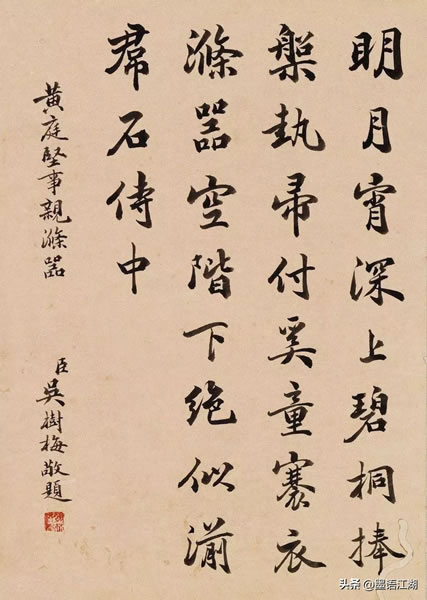 明月宵深上碧桐捧
槃執帚付奚童褰衣
滌器空階下絶似湔
帬石侍中
黃庭堅事親滌器
臣吳樹梅敬題
头条 @墨语江湖